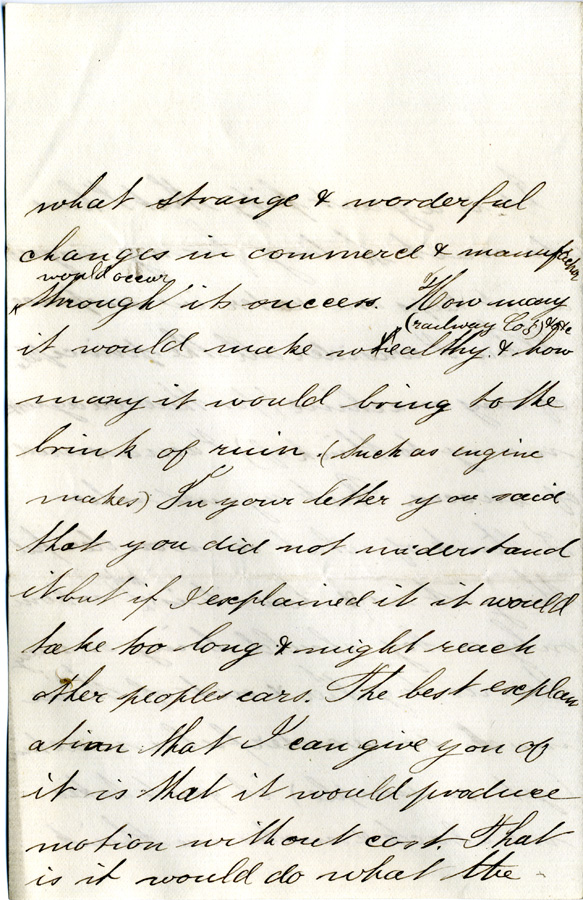 what strange & wonderful
changes in commerce & manufactur
would occur
through its success. How many
(railway Cos) &
it would make wealthy & how
many it would bring to the
brink of ruin. (Such as engine
makes) In your letter you said
that you did not understand
it but if I explained it it would
take too long & might reach
other peoples ears. The best explan
ation that I can give you of
it is that it would produce
motion without cost. That
is it would do what the